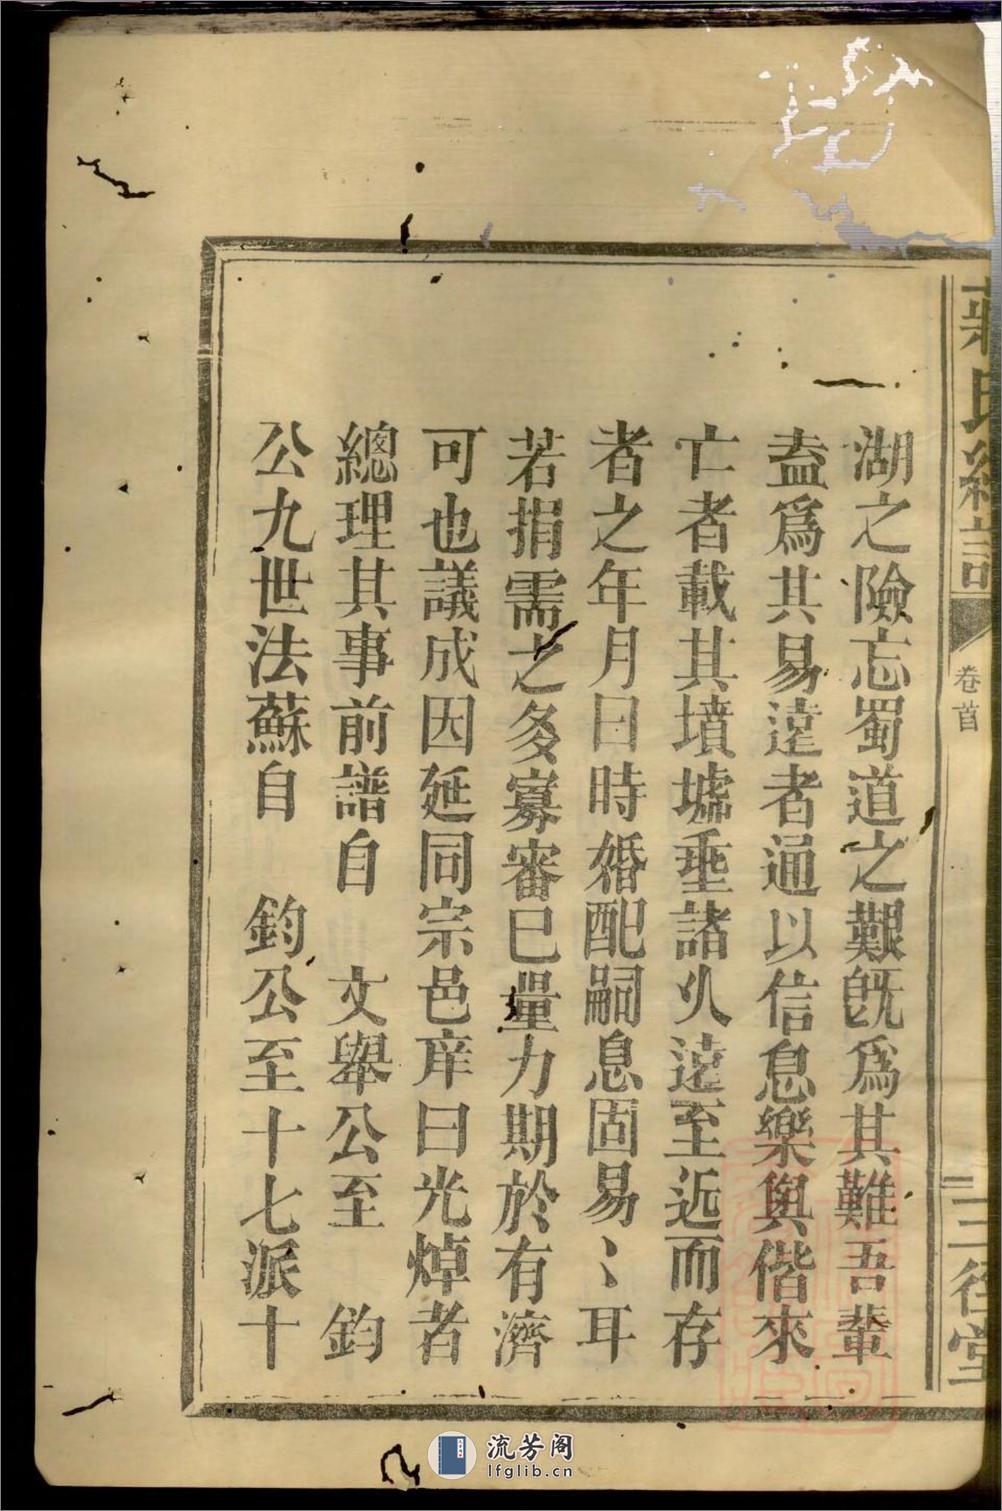 湖之險忘蜀道之艱旣爲其難吾輩
盍爲其易遠者通以信息樂與偕來
亡者載其墳墟垂諸久遠至近而存
者之年月日時婚配嗣息固易〻耳
若捐需之多寡審已量力期於有濟
可也議成因延同宗邑庠曰光焯者
總理其事前譜自　文舉公至　鈞
公九世法蘇自　鈞公至十七派十
卷首
三径堂
流芳阁
lfglib.cn